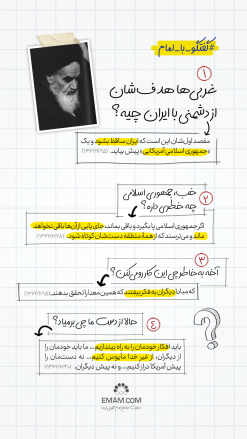 #گفتگو_با_امام
۱
غربی‌ها هدف‌شان
از دشمنی با ایران چیه؟
مقصد اول‌شان این است که ایران ساقط بشود و یک
«جمهوری اسلامی آمریکایی» پیش بیاید.
۲
خب، جمهوری اسلامی
چه خطری داره؟
اگر جمهوری اسلامی پا بگیرد و باقی بماند، جای پایی از آن‌ها باقی نخواهد
ماند و می‌ترسند که از همهٔ منطقه دست‌شان کوتاه شود.
۳
آخه به خاطر چی این کار رو می‌کنن؟
که مبادا دیگران به فکر بیفتند که همین معنا را تحقق بدهند.
۴
حالا از دست ما چی برمیاد؟
باید افکار خودمان را به راه بیندازیم... ما باید خودمان را
از دیگران، از غیر خدا مایوس کنیم... نه دست‌مان را
پیش آمریکا دراز کنیم... و نه پیش دیگران.
EMAM.COM